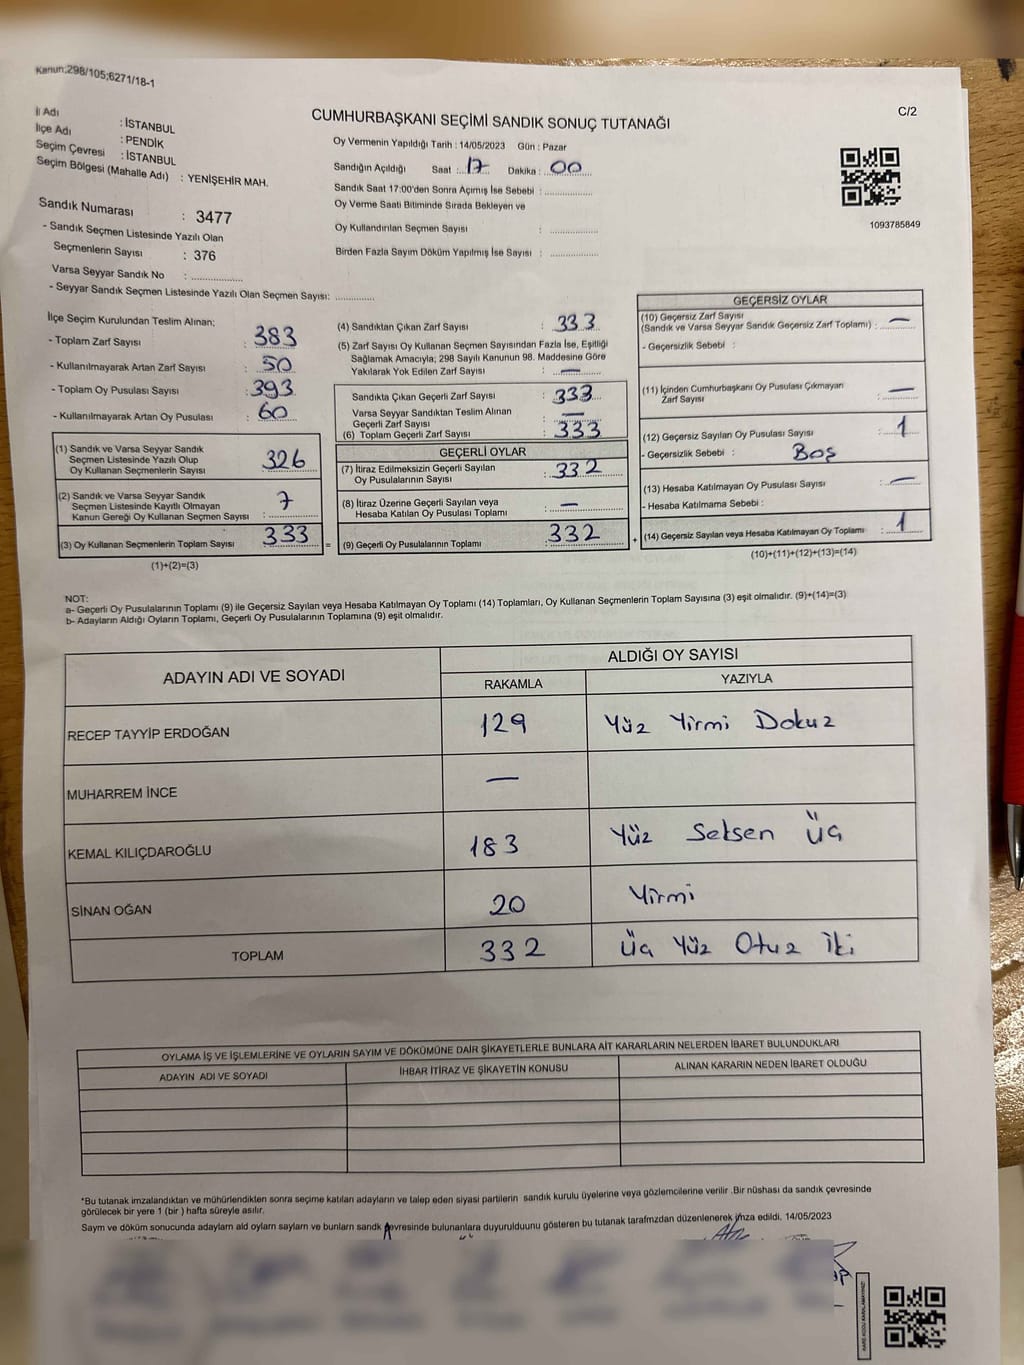 Kanun;298/105;6271/18-1
CUMHURBAŞKANI SEÇİMİ SANDIK SONUÇ TUTANAĞI
C/2
İl Adı : İSTANBUL
İlçe Adı : PENDİK
Seçim Çevresi : İSTANBUL
Seçim Bölgesi (Mahalle Adı) : YENİŞEHİR MAH.
Sandık Numarası : 3477
- Sandık Seçmen Listesinde Yazılı Olan
Seçmenlerin Sayısı : 376
Varsa Seyyar Sandık No :
- Seyyar Sandık Seçmen Listesinde Yazılı Olan Seçmen Sayısı:
Oy Vermenin Yapıldığı Tarih : 14/05/2023 Gün : Pazar
Sandığın Açıldığı Saat : 17 Dakika : 00
Sandık Saat 17:00'den Sonra Açımış İse Sebebi :
Oy Verme Saati Bitiminde Sırada Bekleyen ve
Oy Kullandırılan Seçmen Sayısı :
Birden Fazla Sayım Döküm Yapılmış İse Sayısı :
1093785849
İlçe Seçim Kurulundan Teslim Alınan;
- Toplam Zarf Sayısı : 383
- Kullanılmayarak Artan Zarf Sayısı : 50
- Toplam Oy Pusulası Sayısı : 393
- Kullanılmayarak Artan Oy Pusulası : 60
(1) Sandık ve Varsa Seyyar Sandık
Seçmen Listesinde Yazılı Olup
Oy Kullanan Seçmenlerin Sayısı : 326
(2) Sandık ve Varsa Seyyar Sandık
Seçmen Listesinde Kayıtlı Olmayan
Kanun Gereği Oy Kullanan Seçmen Sayısı : 7
(3) Oy Kullanan Seçmenlerin Toplam Sayısı : 333
(1)+(2)=(3)
=
(4) Sandıktan Çıkan Zarf Sayısı : 333
(5) Zarf Sayısı Oy Kullanan Seçmen Sayısından Fazla İse, Eşitliği
Sağlamak Amacıyla; 298 Sayılı Kanunun 98. Maddesine Göre
Yakılarak Yok Edilen Zarf Sayısı : —
Sandıkta Çıkan Geçerli Zarf Sayısı : 333
Varsa Seyyar Sandıktan Teslim Alınan
Geçerli Zarf Sayısı : —
(6) Toplam Geçerli Zarf Sayısı : 333
GEÇERLİ OYLAR
(7) İtiraz Edilmeksizin Geçerli Sayılan
Oy Pusulalarının Sayısı : 332
(8) İtiraz Üzerine Geçerli Sayılan veya
Hesaba Katılan Oy Pusulası Toplamı : —
(9) Geçerli Oy Pusulalarının Toplamı : 332
+
GEÇERSİZ OYLAR
(10) Geçersiz Zarf Sayısı
(Sandık ve Varsa Seyyar Sandık Geçersiz Zarf Toplamı) : —
- Geçersizlik Sebebi :
(11) İçinden Cumhurbaşkanı Oy Pusulası Çıkmayan
Zarf Sayısı : —
(12) Geçersiz Sayılan Oy Pusulası Sayısı : 1
- Geçersizlik Sebebi : Boş
(13) Hesaba Katılmayan Oy Pusulası Sayısı : —
- Hesaba Katılmama Sebebi :
(14) Geçersiz Sayılan veya Hesaba Katılmayan Oy Toplamı : 1
(10)+(11)+(12)+(13)=(14)
NOT:
a- Geçerli Oy Pusulalarının Toplamı (9) ile Geçersiz Sayılan veya Hesaba Katılmayan Oy Toplamı (14) Toplamları, Oy Kullanan Seçmenlerin Toplam Sayısına (3) eşit olmalıdır. (9)+(14)=(3)
b- Adayların Aldığı Oyların Toplamı, Geçerli Oy Pusulalarının Toplamına (9) eşit olmalıdır.
ADAYIN ADI VE SOYADI
ALDIĞI OY SAYISI
RAKAMLA YAZIYLA
RECEP TAYYİP ERDOĞAN 129 Yüz Yirmi Dokuz
MUHARREM İNCE —
KEMAL KILIÇDAROĞLU 183 Yüz Seksen Üç
SİNAN OĞAN 20 Yirmi
TOPLAM 332 Üç Yüz Otuz İki
OYLAMA İŞ VE İŞLEMLERİNE VE OYLARIN SAYIM VE DÖKÜMÜNE DAİR ŞİKAYETLERLE BUNLARA AİT KARARLARIN NELERDEN İBARET BULUNDUKLARI
ADAYIN ADI VE SOYADI İHBAR İTİRAZ VE ŞİKAYETİN KONUSU ALINAN KARARIN NEDEN İBARET OLDUĞU
*Bu tutanak imzalandıktan ve mühürlendikten sonra seçime katılan adayların ve talep eden siyasi partilerin sandık kurulu üyelerine veya gözlemcilerine verilir .Bir nüshası da sandık çevresinde
görülecek bir yere 1 (bir ) hafta süreyle asılır.
Sayım ve döküm sonucunda adaylarn ald oylarn saylarn ve bunlarn sandk çevresinde bulunanlara duyurulduunu gösteren bu tutanak tarafmzdan düzenlenerek imza edildi. 14/05/2023